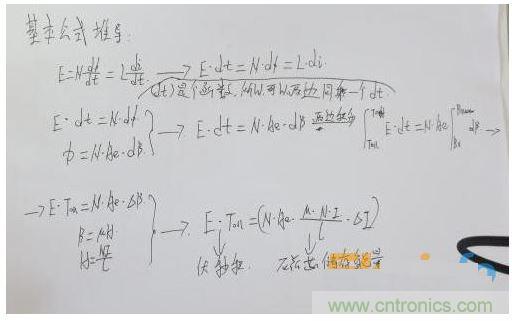 基本公式推导:
E=N·dϕ/dt=L di/dt → E·dt=N·dϕ=L·di
(dt)是个函数,所以可以两边同乘一个dt
E·dt=N·dϕ
ϕ=N·Ae·dB
→ E·dt=N·Ae·dB 两边积分 ∫ E·dt=N·Ae ∫ dB →
→E·Ton=N·Ae·ΔB
B=μH
→ E·Ton=(N·Ae· μ·N·I/l ·ΔI)
伏秒积
www.cntronics.com